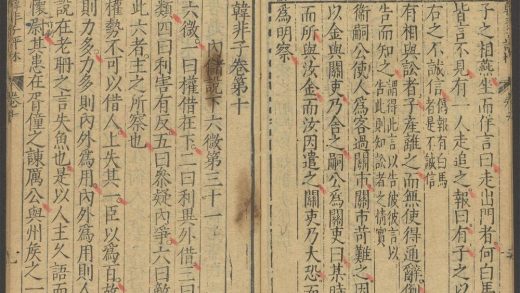 子之相燕坐而佯言曰走出門者何白馬
皆言不見有一人走追之報曰有子之以
右之不誠信 偽報有白馬者是不誠信
有相與訟者子產離之而無使得通辭倒
告而知之 謂得此言以告彼彼言以告此則知訟者之情實
衛嗣公使人為客過關市關市苛難之因
以金與關吏乃舍之嗣公為關吏曰某時
而所與汝金而汝因遣之關吏乃大恐而
為明察
韓非子卷第十
內儲說下六微第三十一
六微一曰權借在下二曰利異外借三曰
類四曰利害有反五曰參疑內爭六曰敵
此六者主之所察也
權勢不可以借人上失其一臣以為百故
則力多力多則內外為用內外為用則人
說在老聃之言失魚也是以人主久語而
懷尉其患在胥僮之諫厲公與州侯之一